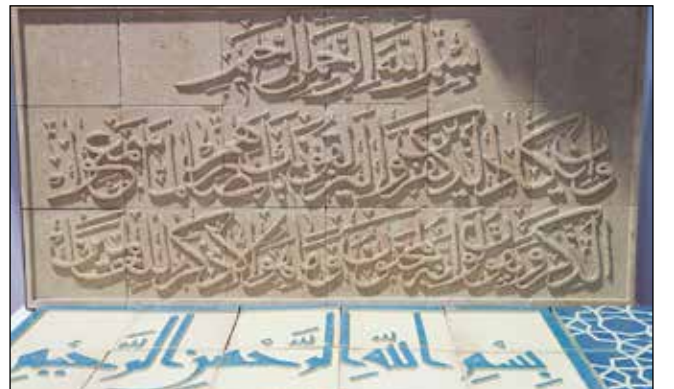 بسم الله الرحمن الرحيم
وإن يكاد الذين كفروا ليزلقونك بأبصارهم لما سمعوا
الذكر ويقولون إنه لمجنون وما هو إلا ذكر للعالمين
بِسْمِ اللّهِ الرَّحْمنِ الرَّحْيمِ